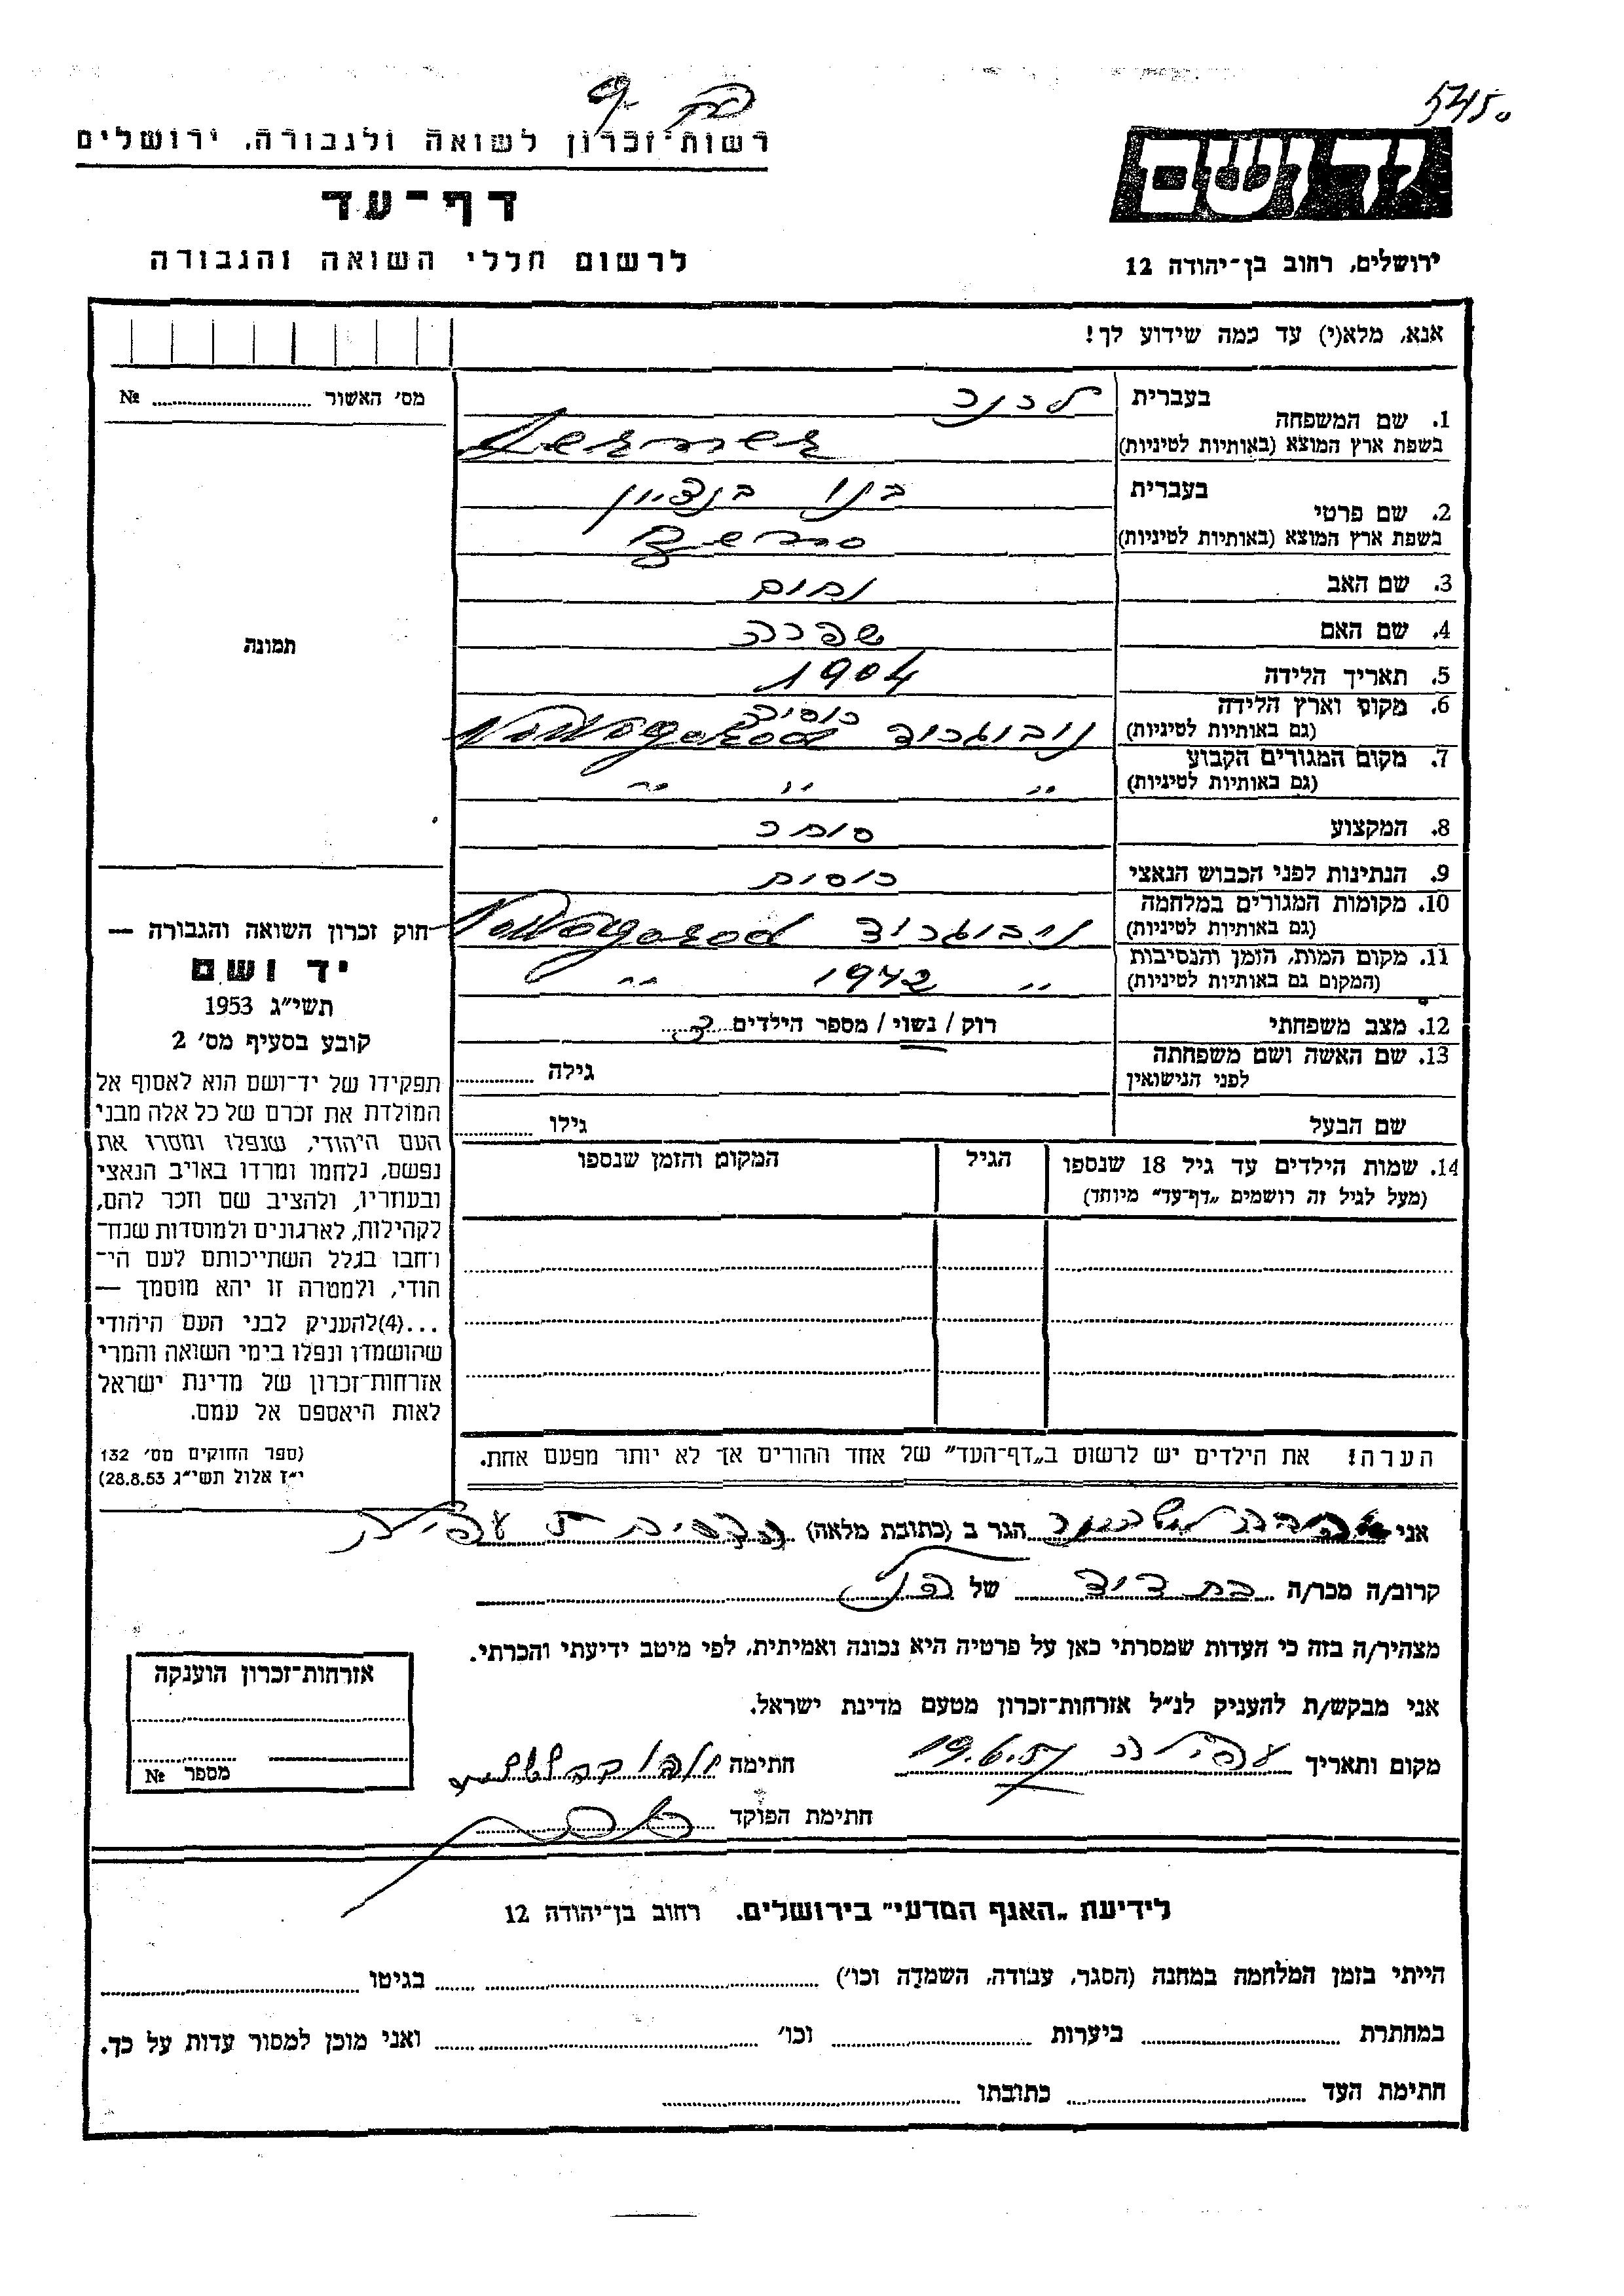 5450
רשות־זכרון לשואה ולגבורה, ירושלים
דף־עד
לרשום חללי השואה והגבורה
יד ושם
ירושלים, רחוב בן־יהודה 12
אנא, מלא(י) עד כמה שידוע לך!
מס׳ האשור № 
1. שם המשפחה בעברית לרנר
בשפת ארץ המוצא (באותיות לטיניות) Lerner
2. שם פרטי בעברית בנו בנציון
בשפת ארץ המוצא (באותיות לטיניות)
3. שם האב נחום
4. שם האם שפרה
תמונה
5. תאריך הלידה 1904
6. מקום וארץ הלידה נובוגרוד רוסיה
(גם באותיות לטיניות) Nowogorod
7. מקום המגורים הקבוע
(גם באותיות לטיניות) " " "
8. המקצוע סוחר
9. הנתינות לפני הכבוש הנאצי רוסית
10. מקומות המגורים במלחמה
(גם באותיות לטיניות) נובוגרוד Nowogorod
11. מקום המות, הזמן והנסיבות
(המקום גם באותיות לטיניות) " 1942 "
12. מצב משפחתי רוק / נשוי / מספר הילדים
13. שם האשה ושם משפחתה
לפני הנישואין גילה
שם הבעל גילו
14. שמות הילדים עד גיל 18 שנספו הגיל המקום והזמן שנספו
(מעל לגיל זה רושמים „דף־עד” מיוחד)
הערה! את הילדים יש לרשום ב„דף־העד” של אחד ההורים אך לא יותר מפעם אחת.
חוק זכרון השואה והגבורה —
יד ושם
תשי״ג 1953
קובע בסעיף מס׳ 2
תפקידו של יד־ושם הוא לאסוף אל
המולדת את זכרם של כל אלה מבני
העם היהודי, שנפלו ומסרו את
נפשם, נלחמו ומרדו באויב הנאצי
ובעוזריו, ולהציב שם וזכר להם,
לקהילות, לארגונים ולמוסדות שנח־
רבו בגלל השתייכותם לעם הי־
הודי, ולמטרה זו יהא מוסמך —
...(4)להעניק לבני העם היהודי
שהושמדו ונפלו בימי השואה והמרי
אזרחות־זכרון של מדינת ישראל
לאות היאספם אל עמם.
(ספר החוקים מס׳ 132
י״ז אלול תשי״ג 28.8.53)
אני הגר ב (כתובת מלאה)
קרוב/ה מכר/ה בת דוד של
מצהיר/ה בזה כי העדות שמסרתי כאן על פרטיה היא נכונה ואמיתית, לפי מיטב ידיעתי והכרתי.
אני מבקש/ת להעניק לנ״ל אזרחות־זכרון מטעם מדינת ישראל.
מקום ותאריך עפולה 19.6.57 חתימה
חתימת הפוקד
אזרחות־זכרון הוענקה
מספר №
לידיעת „האגף המדעי” בירושלים. רחוב בן־יהודה 12
הייתי בזמן המלחמה במחנה (הסגר, עבודה, השמדה וכו׳) בגיטו
במחתרת ביערות וכו׳ ואני מוכן למסור עדות על כך.
חתימת העד כתובתו